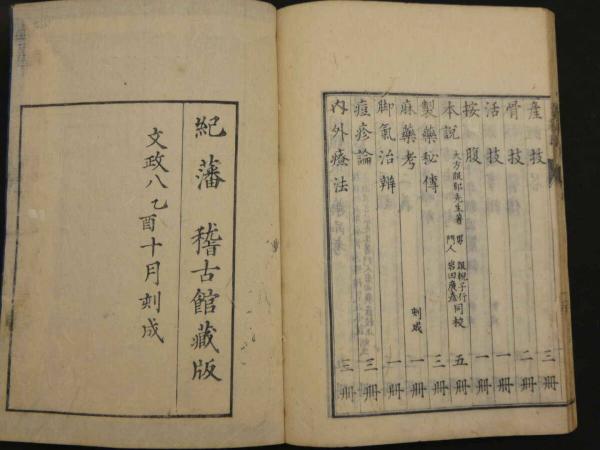 産技 三冊
骨技 二冊
活技 一冊
按腹 一冊
本説 大方服部先生著 男 門人 岩田廣彦 同校 五冊
製藥秘傳 三冊
麻藥考 刺成 一冊
脚氣治辨 一冊
痘疹論 三冊
内外療法 三冊
紀藩 稽古館藏版
文政八乙酉十月刻成